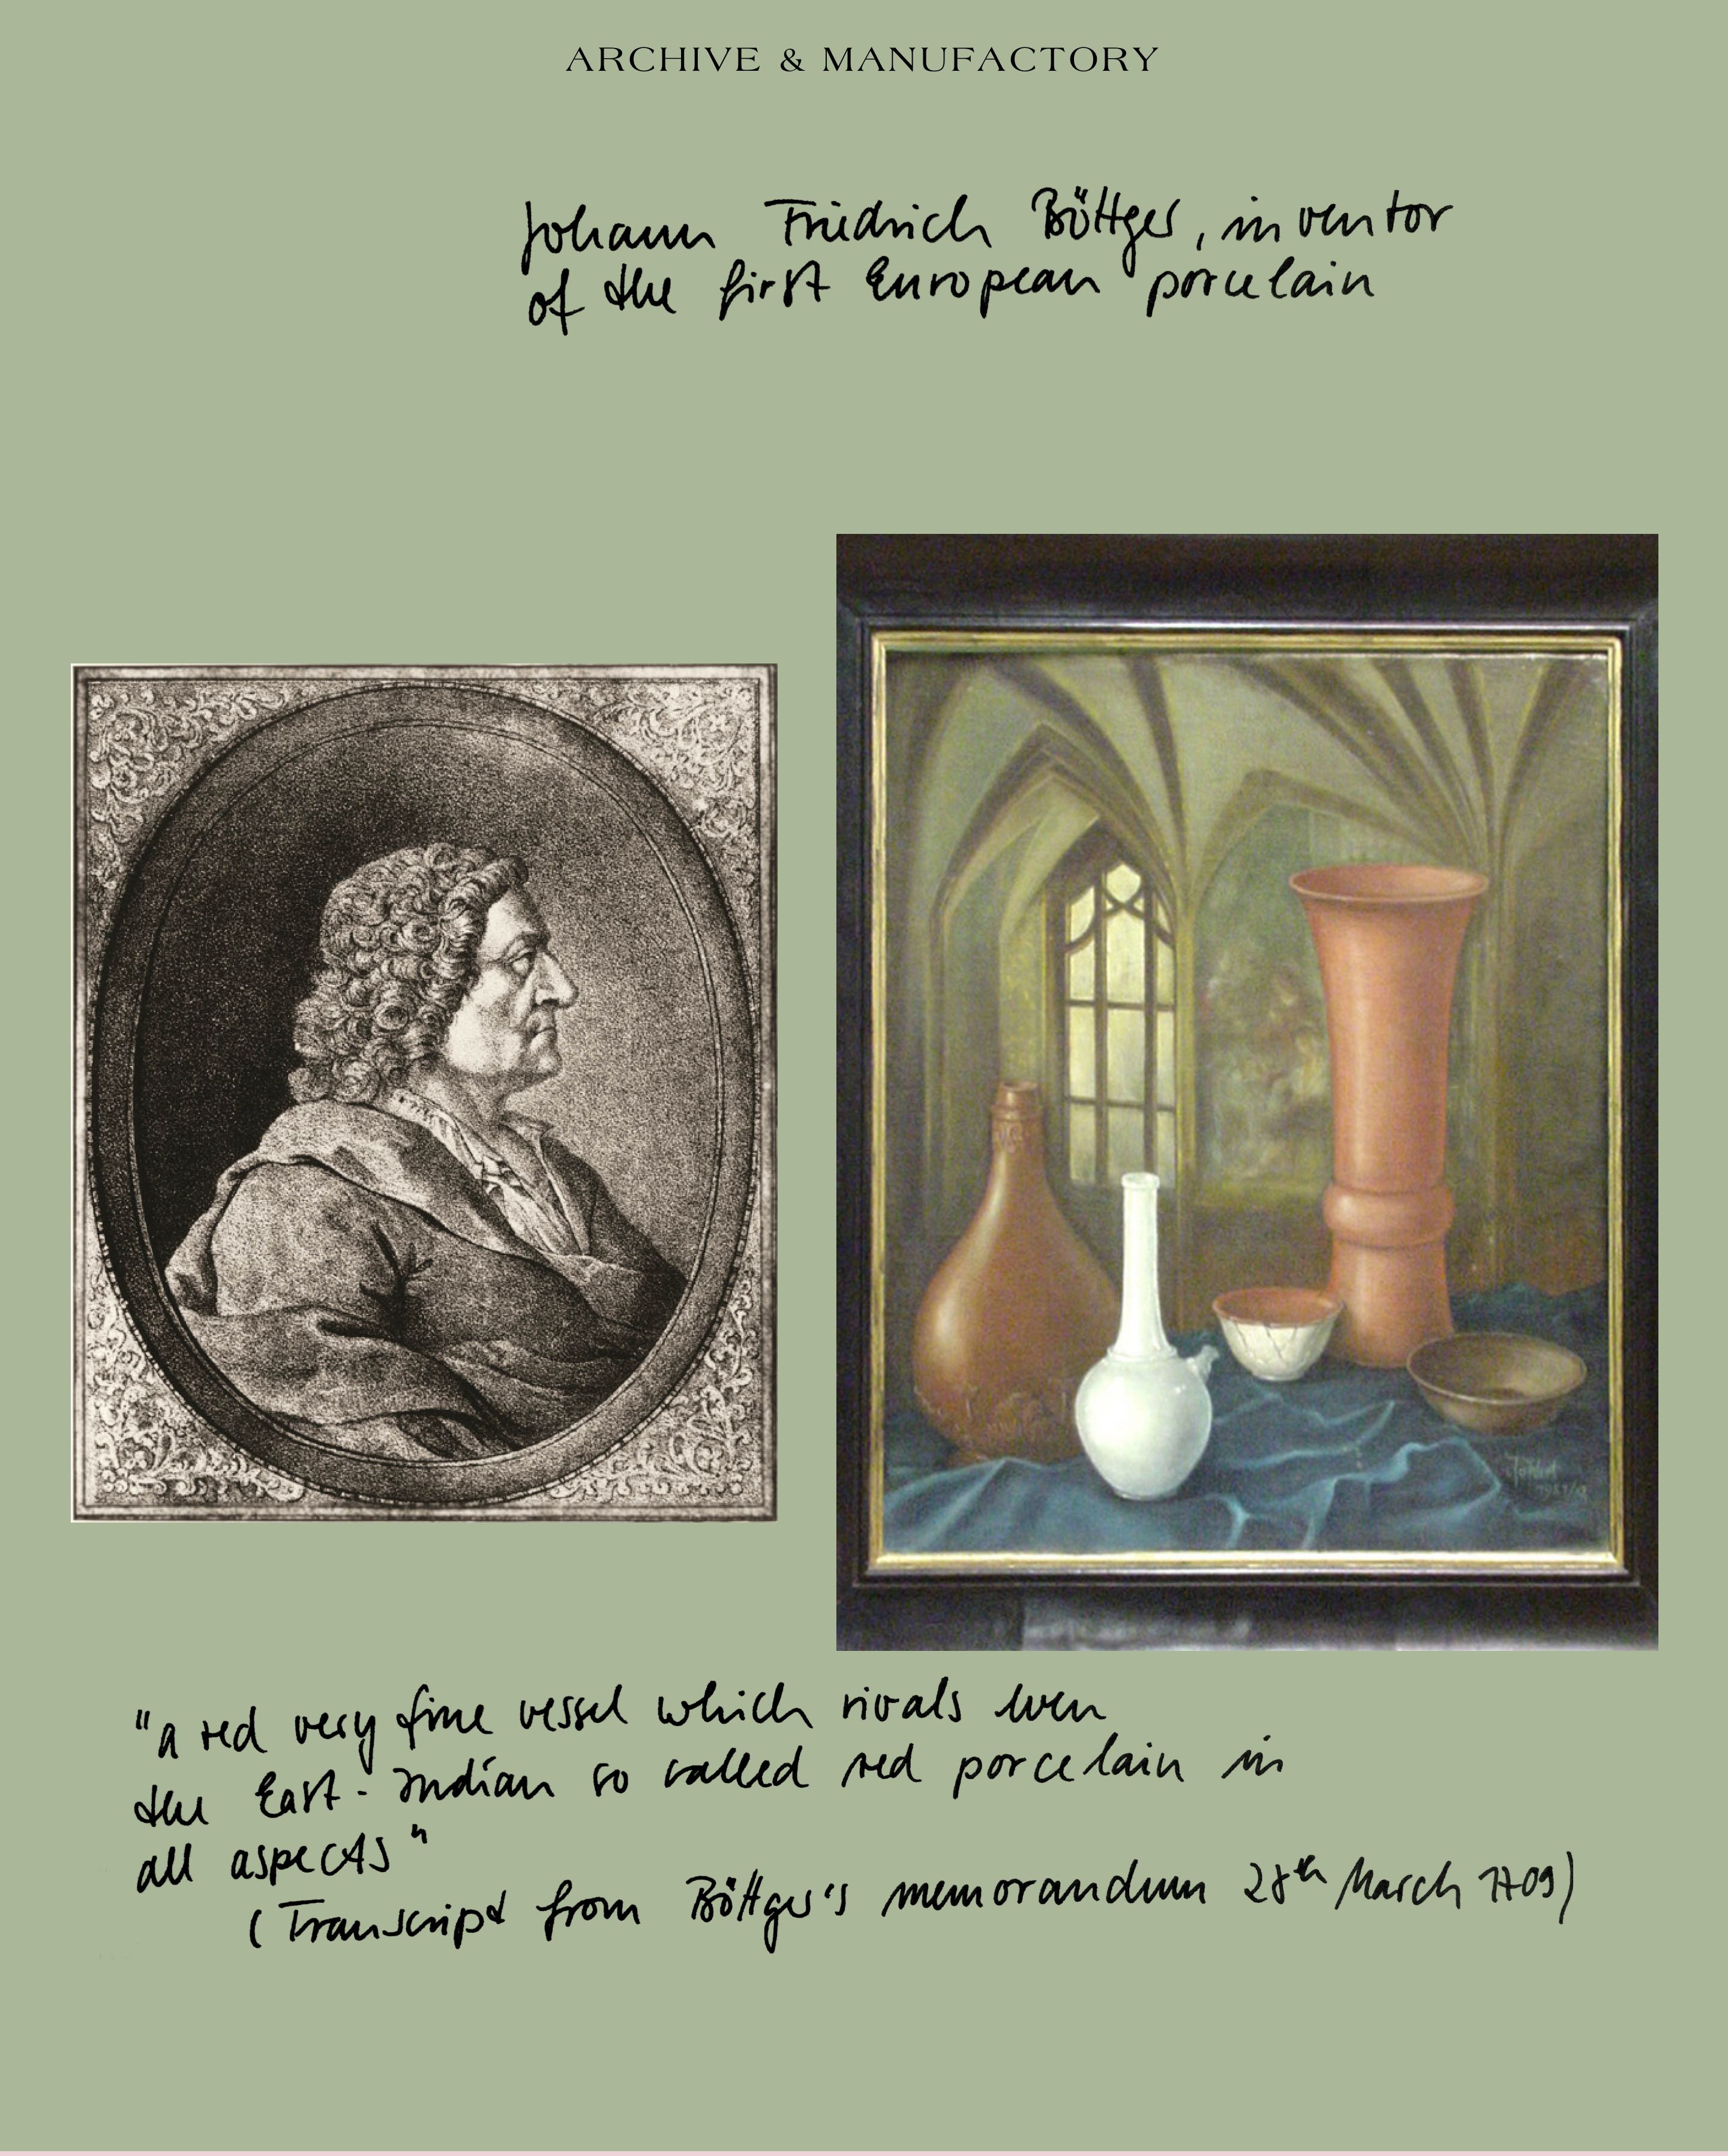 ARCHIVE & MANUFACTORY
Johann Friedrich Böttger, inventor
of the first European porcelain
"a red very fine vessel which rivals even
the East-Indian so called red porcelain in
all aspects"
(Transcript from Böttger's memorandum 28th March 1709)